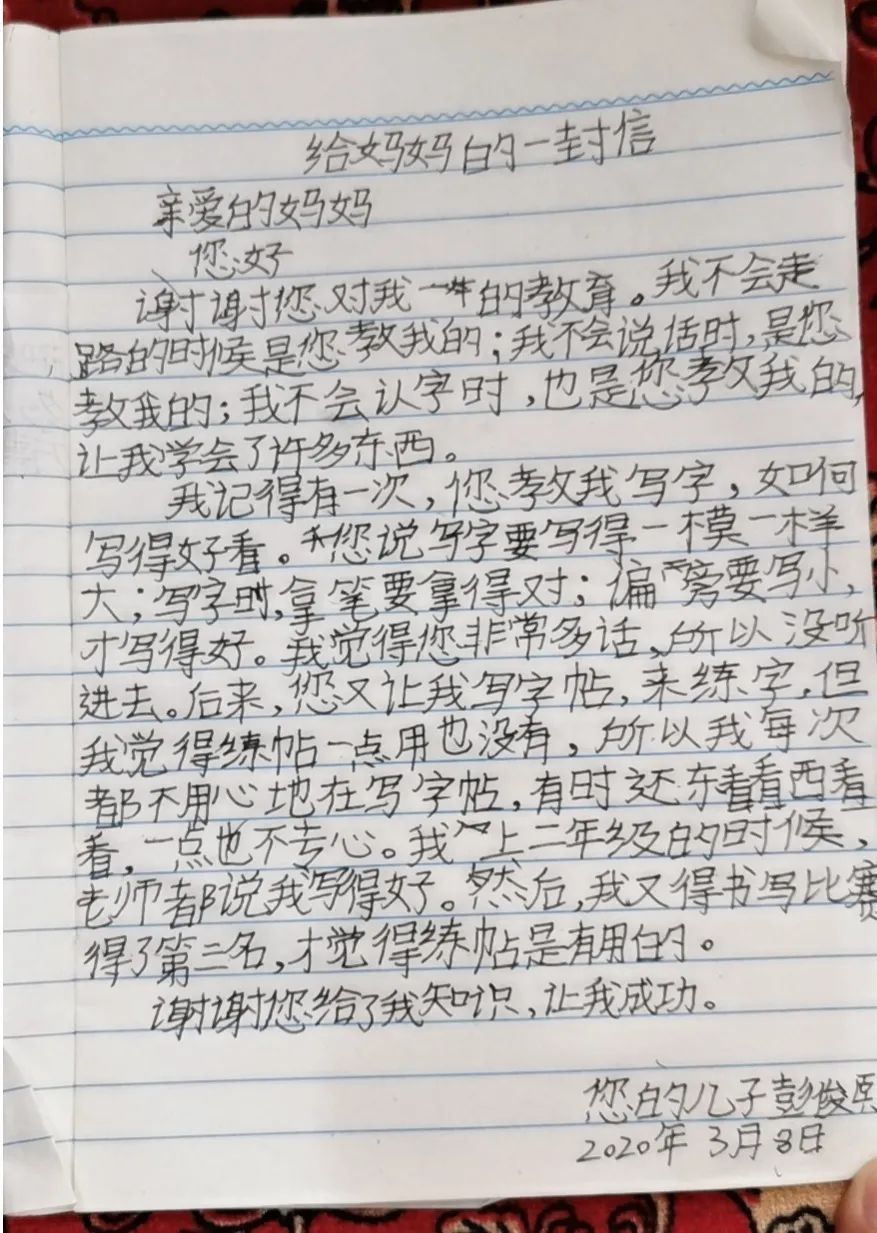 给妈妈的一封信
亲爱的妈妈
您好
谢谢您对我一生的教育。我不会走
路的时候是您教我的；我不会说话时，是您
教我的；我不会认字时，也是您教我的，
让我学会了许多东西。
我记得有一次，您教我写字，如何
写得好看。您说写字要写得一模一样
大；写字时，拿笔要拿得对；偏旁要写小，
才写得好。我觉得您非常多话，所以没听
进去。后来，您又让我写字帖，来练字，但
我觉得练帖一点用也没有，所以我每次
都不用心地在写字帖，有时还东看看西看
看，一点也不专心。我上二年级的时候，
老师都说我写得好。然后，我又得书写比赛
得了第三名，才觉得练帖是有用的。
谢谢您给了我知识，让我成功。
您的儿子彭俊
2020年3月8日